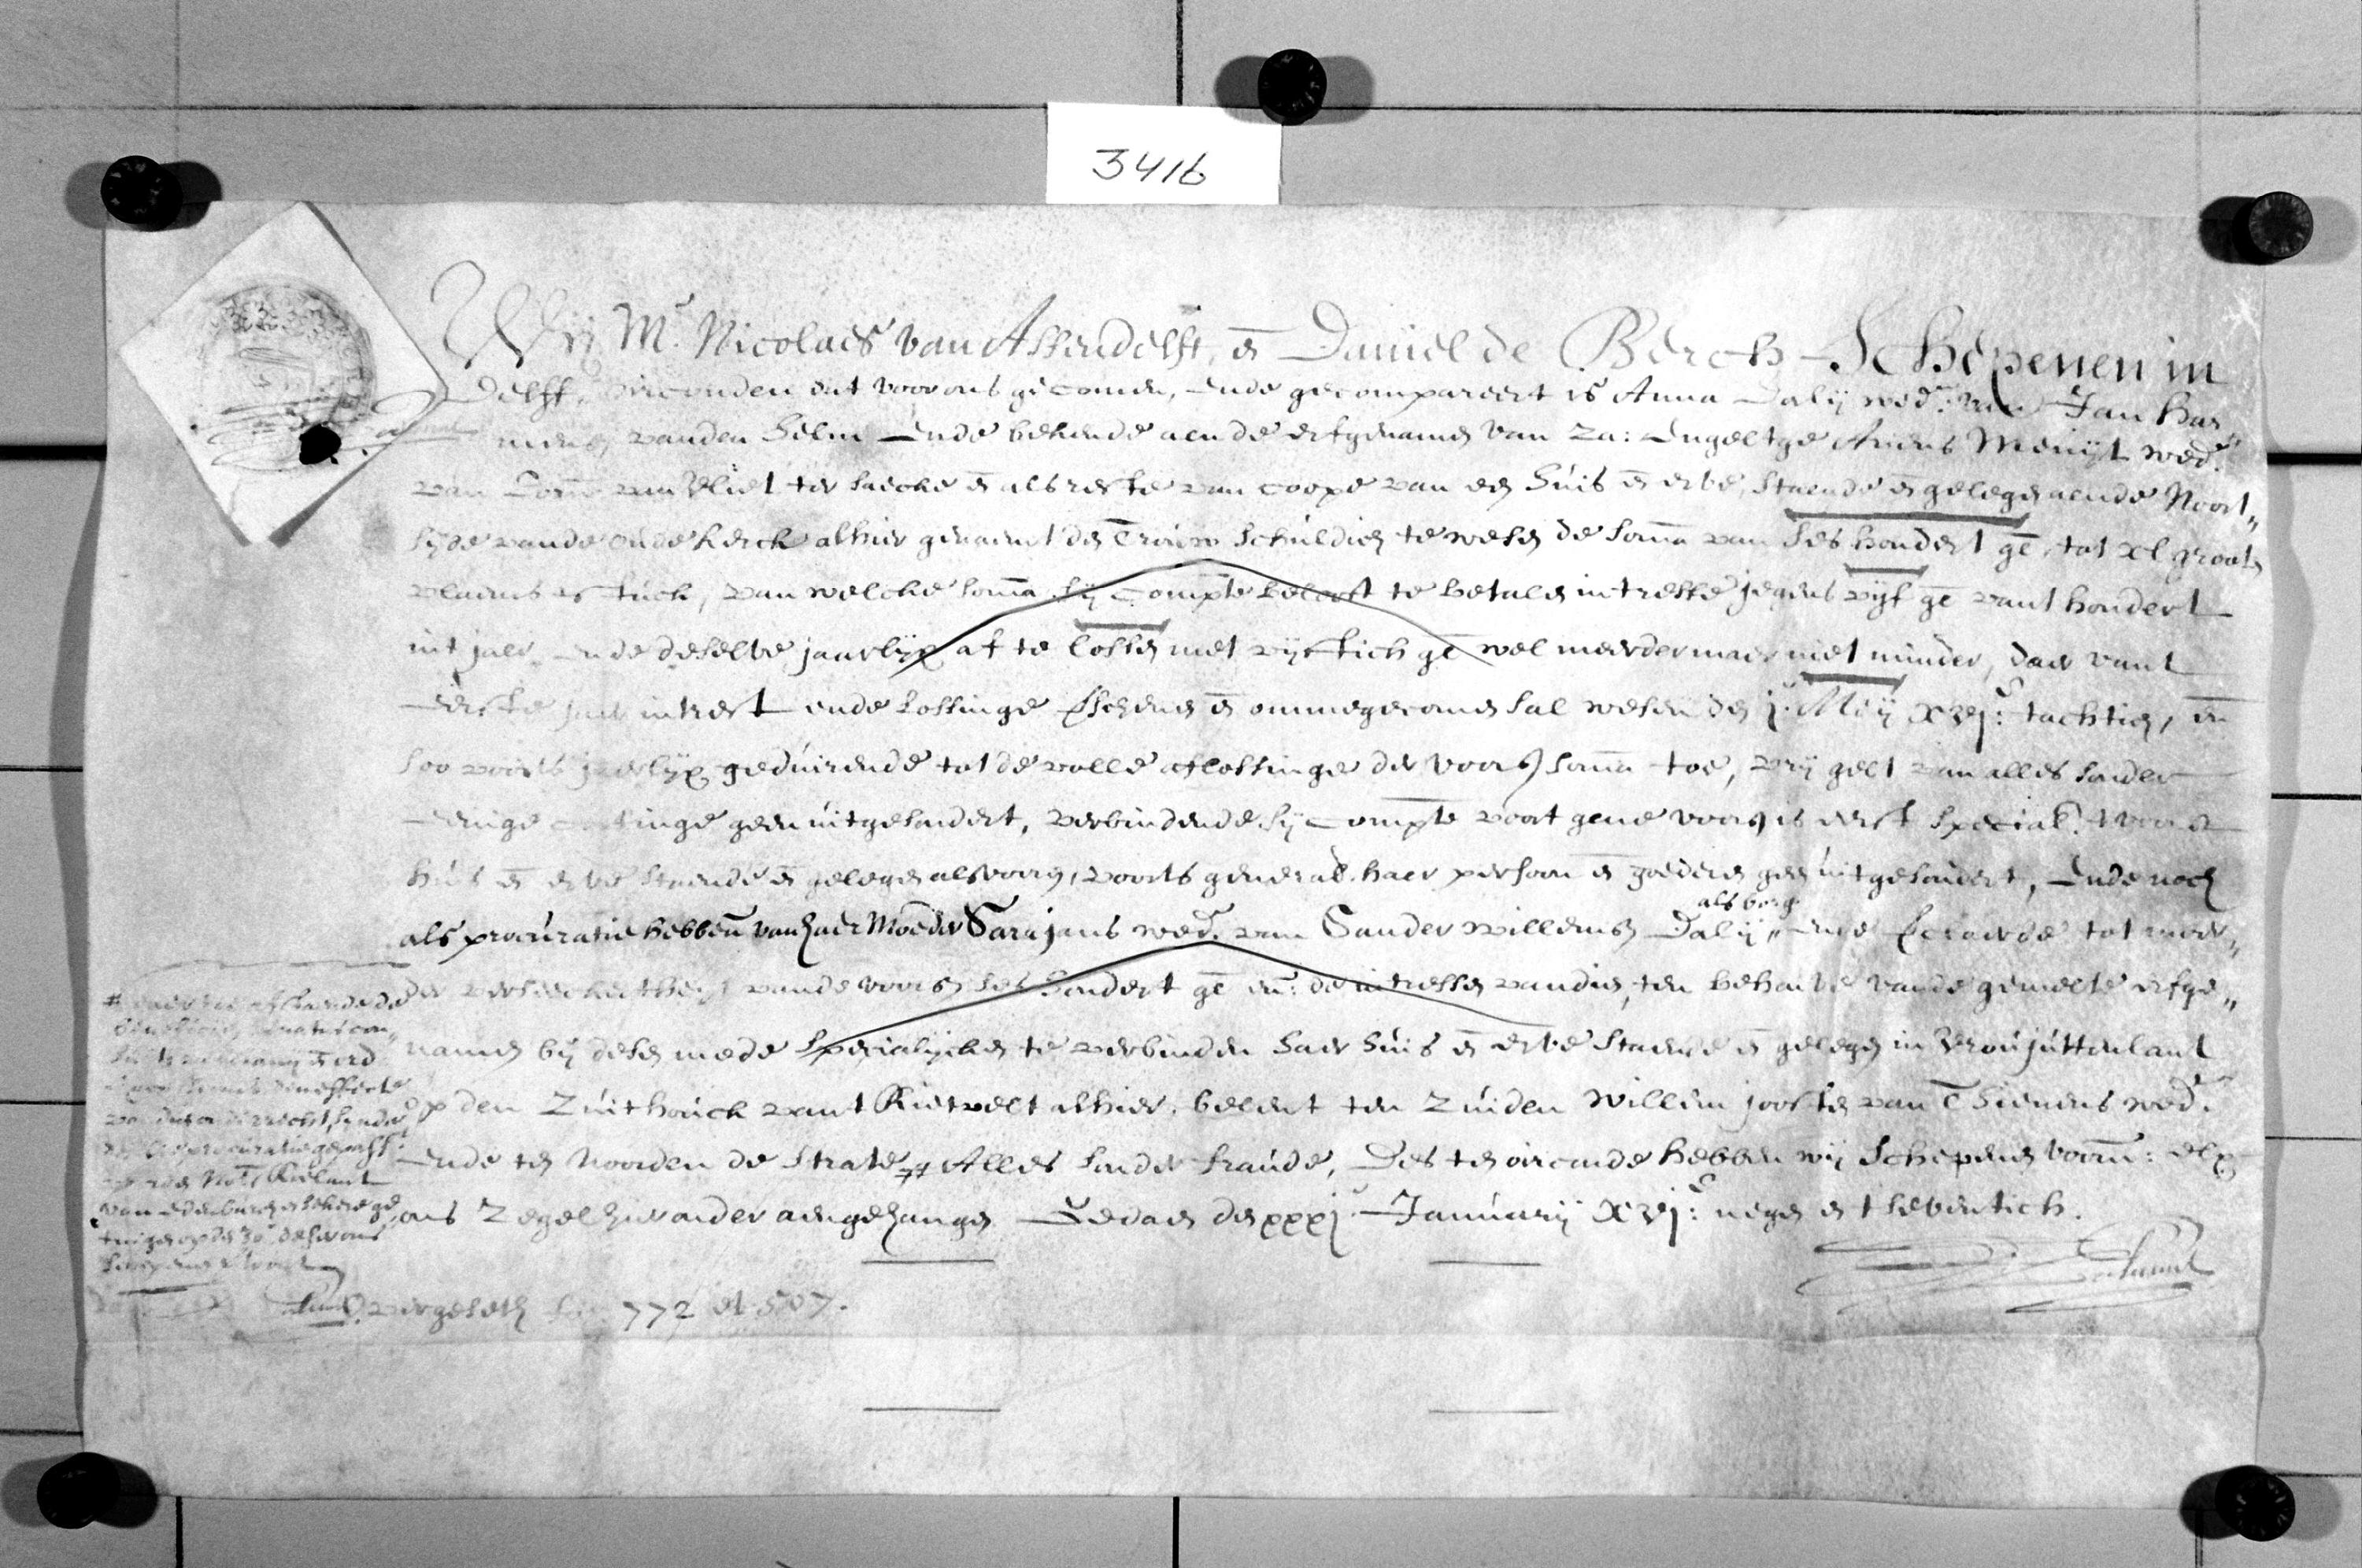 3416
Wij Mr. Nicolaes van Assendelft, en̄ Daniel de Berch Schepenen in
Delff, oirconden dat voor ons gecomen, ende gecompareert is Anna Dalij wed.e van Jan Har„
mensz vanden Helm Ende bekende aen de erfgenamen van Za: Engeltge Ariens Meuijt wed.e
van Corn. van Vliet ter saecke en̄ als reste van coope van een huis en̄ erve, staende en̄ gelegen aende Noort„
sijde vande oude kerck alhier genaemt den Trouw schuldich te wesen de som̄a van ses hondert gē, tot xl grooten
vlaems 't stuck, van welche som̄a sij Compte belooft te betalen intresse jegens vijf gē vant hondert
int jaer, ende deselve jaarlijx af te lossen met vijftich gē wel meerder maer niet minder, daer vant
eerste jaer intrest ende lossinge verschenen en̄ ommegecomen sal wesen den j.e Meij xvjc: tachtich, en̄
soo voorts jaerlijx geduirende tot de volle aflossinge der voorsz som̄a toe, vrij gelt van alles sonder
eenige cortinge geen uitgesondert, verbindende sij Compte voor 't gene voorsz is eerst speciael. 't voorsz
huis en̄ erve staende en̄ gelegen als voorsz, voorts generael. haer persoon en̄ goederen geen uitgesondert, Ende noch
als borge
als procuratie hebben̄ van haer Moeder Sara Jans wed.e van Sander Willemsz Dalij„ ende verclaerde tot meer„
der verseeckertheijt vande voorsz ses hondert gē en̄: de intressen vandien, ten behouve vande gemelte erfge„
namen bij desen mede specialijcken te verbinden haer huis en̄ erve staende en̄ gelegen in Vroujuttenlant
op den Zuithouck vant Rietvelt alhier, belent ten Zuiden Willem Joosten van Thienens wed.e
Ende ten Noorden de Strate # Alles sonder fraude, Des ten oirconde hebben wij Schepenen voorn̄: elx
ons Zegel hier onder aengehangen Gedaen den xxxj.e Januarij xvjc: negen en tseventich.
# daer toe afstaende de
beneficien senatus con„
sulti velleiani en̄ ord
van de procuratie gepasst.
voor den Nots. Roelant
van Edenburch en sekere ge„
tuigen op den 30e deser ons
Schepenen verthoont
vergeleth 772 et 507.